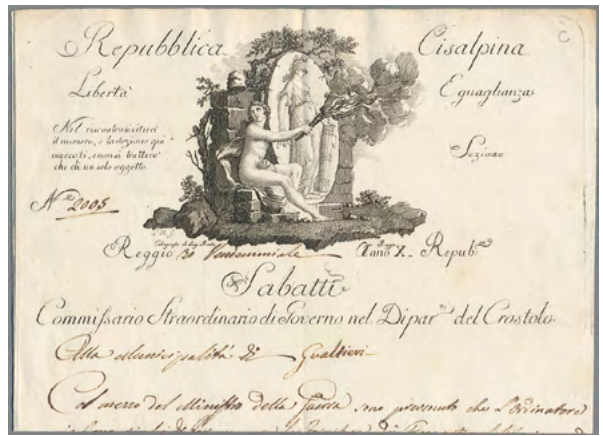 Repubblica Cisalpina
Libertà Eguaglianza
Nel riscontro si citerà
il numero, e la sezione quì
marcati, e non si tratterà
che di un solo oggetto.
Sezione
N.º 2005
Reggio 30 Vendemmiale Anno X. Repub.no
Sabatti
Commissario Straordinario di Governo nel Dipar.to del Crostolo.
Alla Municipalità di Gualtieri
Col mezzo del Ministro della Guerra sono prevenuto che l'Ordinatore